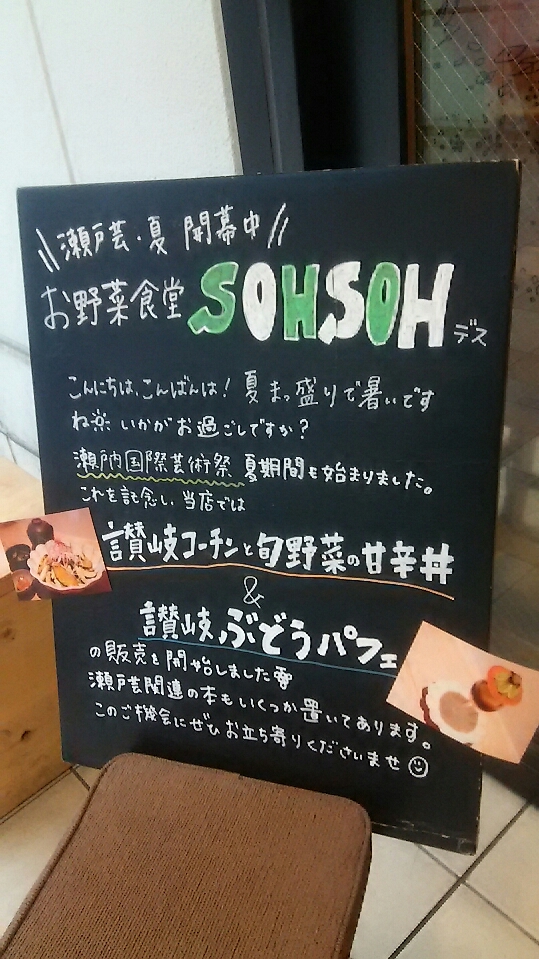 \\瀬戸芸・夏 開幕中//
お野菜食堂 SOHSOH デス
こんにちは、こんばんは！ 夏まっ盛りで暑いです
ね※ いかがお過ごしですか？
瀬戸内国際芸術祭 夏期間も始まりました。
これを記念し、当店では
讃岐コーチンと旬野菜の甘辛丼
&
讃岐ぶどうパフェ
の販売を開始しました
瀬戸芸関連の本もいくつか置いてあります。
このご機会にぜひお立ち寄りくださいませ